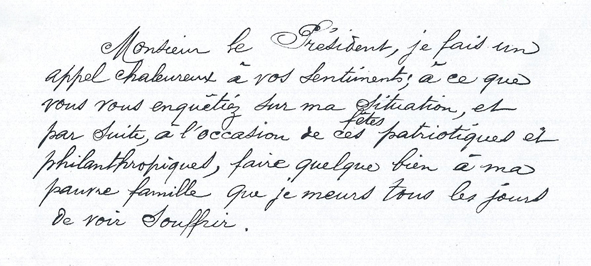 Monsieur le Président, je fais un
appel chaleureux à vos sentiments; à ce que
vous vous enquêtiez sur ma situation, et
par suite, à l'occasion de ces fêtes patriotiques et
philanthropiques, faire quelque bien à ma
pauvre famille que je meurs tous les jours
de voir souffrir.